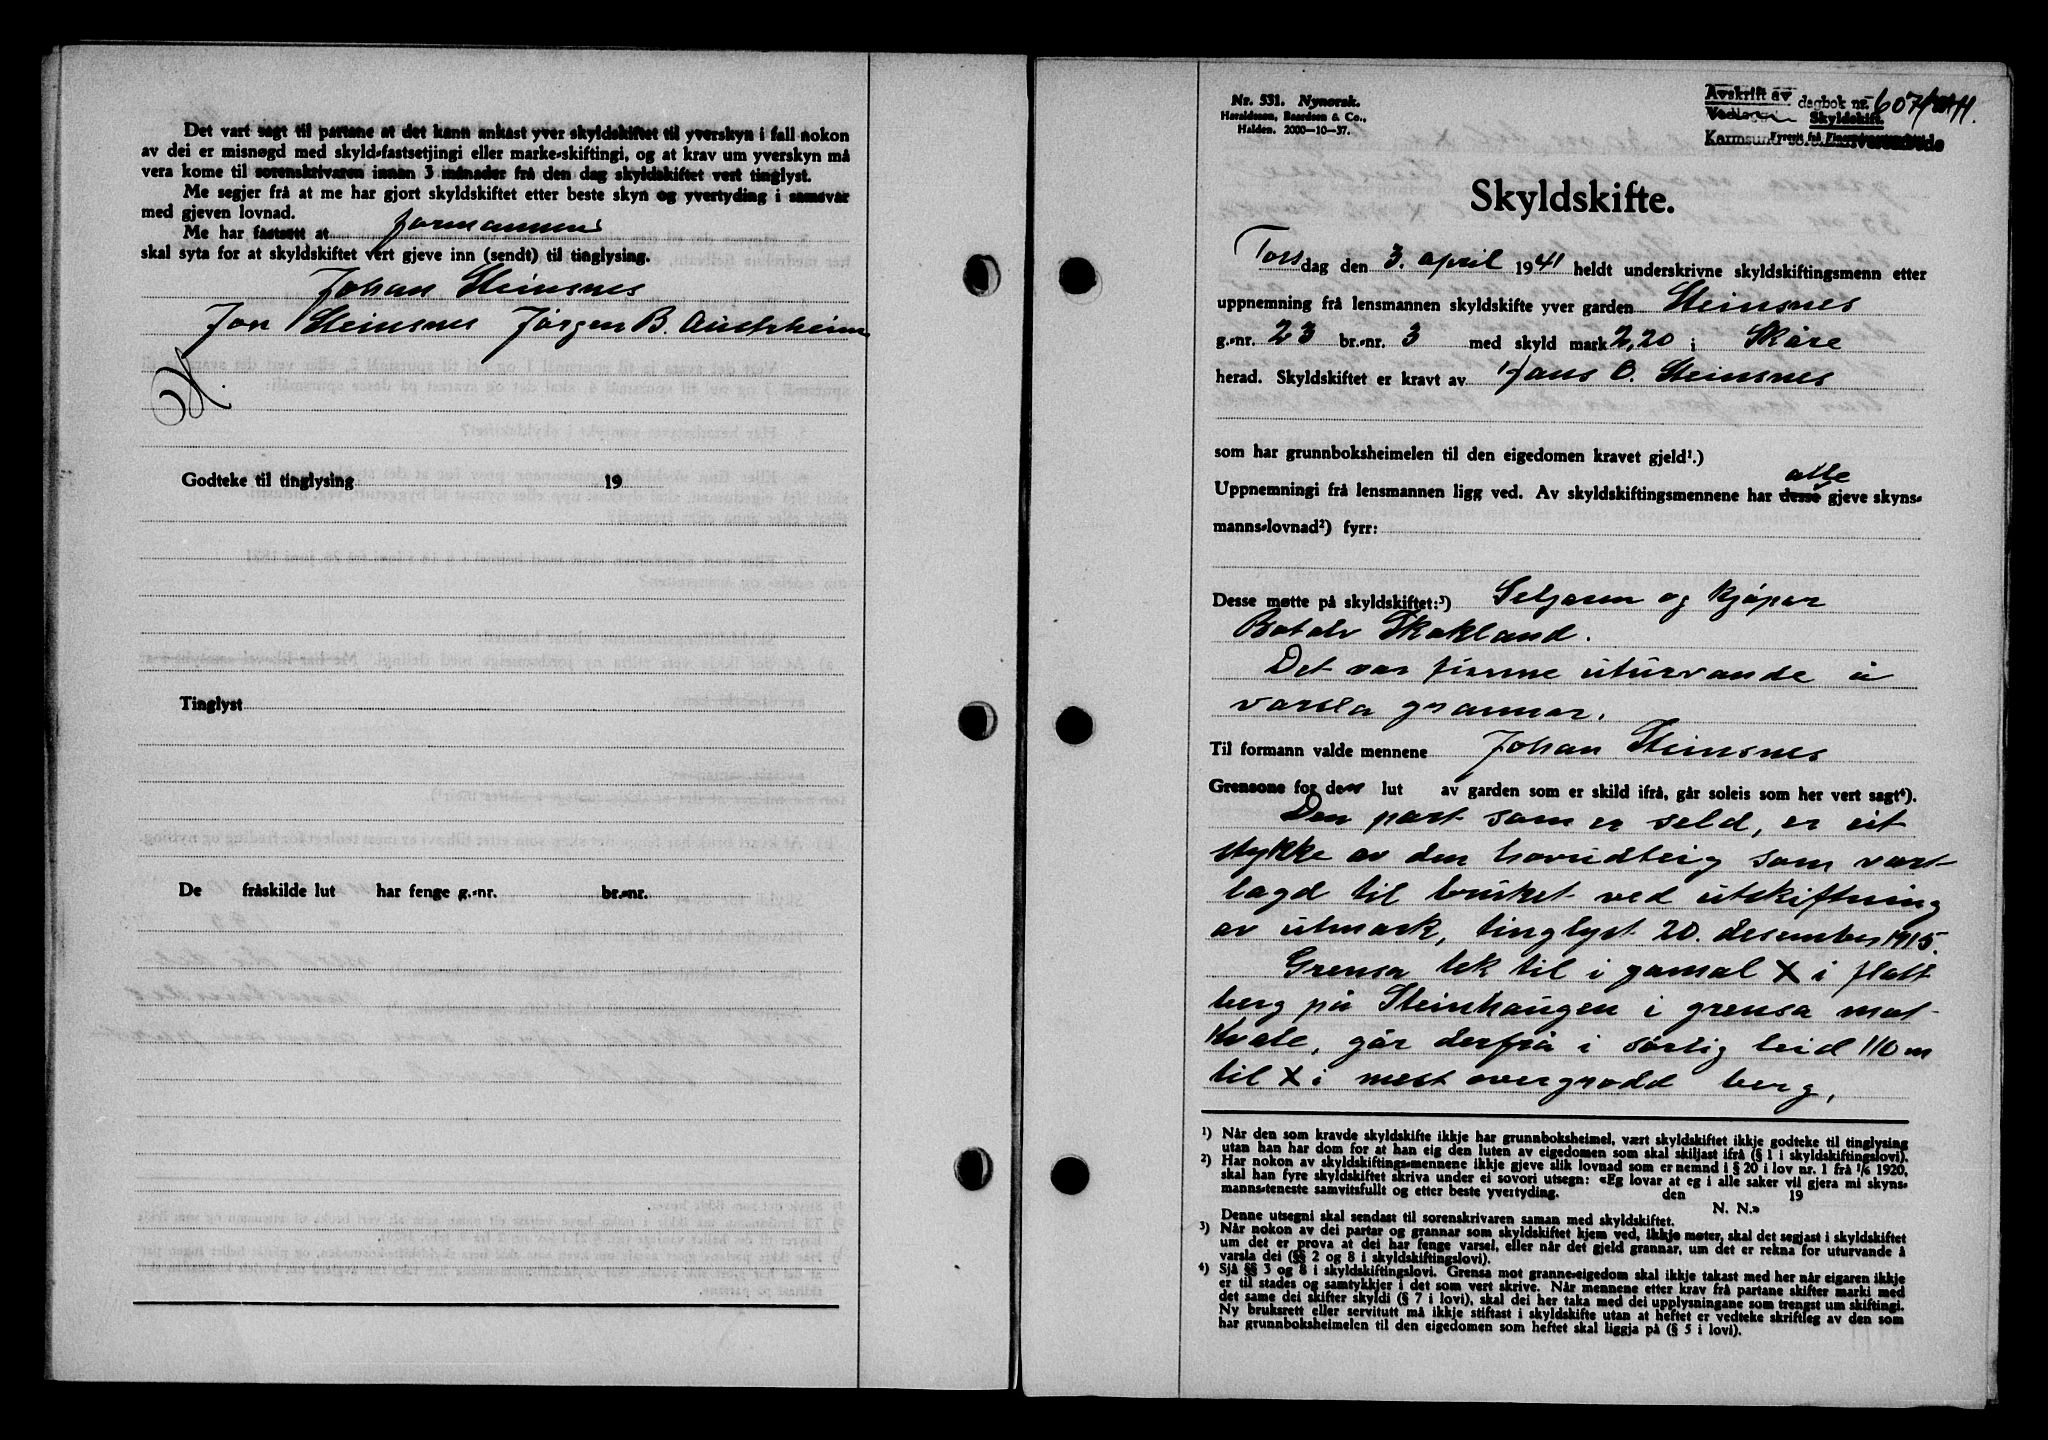 Det vart sagt til partane at det kann ankast yver skyldskiftet til yverskyn i fall nokon
av dei er misnøgd med skyld-fastsetjingi eller marke-skiftingi, og at krav um yverskyn må
vera kome til sorenskrivaren innan 3 månader frå den dag skyldskiftet vert tinglyst.
Me segjer frå at me har gjort skyldskiftet etter beste skyn og yvertyding i samsvar
med gjeven lovnad.
Me har fastsett at formannen
skal syta for at skyldskiftet vert gjeve inn (sendt) til tinglysing.
Johan Steinsnes
Jon Steinsnes Jørgen B. Austrheim
Godteke til tinglysing 19
Tinglyst
De fråskilde lut har fenge g.-nr. br.-nr.
Nr. 531. Nynorsk.
Haraldssen, Baardsen & Co.,
Halden. 2000-10-37.
Avskrift av
dagbok nr. 607
Skyldskift.
Skyldskifte.
Torsdag den 3. april 1941 heldt underskrivne skyldskiftingsmenn etter
uppnemning frå lensmannen skyldskifte yver garden Steinsnes
g.-nr. 23 br.-nr. 3 med skyld mark 2,20 i Skåre
herad. Skyldskiftet er kravt av Hans O. Steinsnes
som har grunnboksheimelen til den eigedomen kravet gjeld¹.)
alle
Uppnemningi frå lensmannen ligg ved. Av skyldskiftingsmennene har desse gjeve skyns-
manns-lovnad²) fyrr:
Desse møtte på skyldskiftet:³) Seljaren og kjøpar
Botolv Skokland.
Det var finne uturvande å
varsla grannar.
Til formann valde mennene Johan Steinsnes
Grensone for den lut av garden som er skild ifrå, går soleis som her vert sagt⁴).
Den part som er seld, er eit
stykke av den hovudteig som vart
lagd til bruket ved utskiftning
av utmark, tinglyst 20. desember 1915.
Grensa tek til i gamal X i flatt
berg på Steinhaugen i grensa mot
Kvale, går derfrå i sørlig leid 110 m
til X i mest overgrodd berg,
¹) Når den som kravde skyldskifte ikkje har grunnboksheimel, vært skyldskiftet ikkje godteke til tinglysing
utan han har dom for at han eig den luten av eigedomen som skal skiljast ifrå (§ 1 i skyldskiftingslovi).
²) Har nokon av skyldskiftings-mennene ikkje gjeve slik lovnad som er nemnd i § 20 i lov nr. 1 frå 1/6 1920,
skal han fyre skyldskiftet skriva under ei sovori utsegn: «Eg lovar at eg i alle saker vil gjera mi skyns-
manns-teneste samvitsfullt og etter beste yvertyding. den 19
N. N.»
Denne utsegni skal sendast til sorenskrivaren saman med skyldskiftet.
³) Når nokon av dei partar og grannar som skyldskiftet kjem ved, ikkje møter, skal det segjast i skyldskiftet
um det er prova at dei har fenge varsel, eller når det gjeld grannar, um det er rekna for uturvande å
varsla dei (§§ 2 og 8 i skyldskiftingslovi).
⁴) Sjå §§ 3 og 8 i skyldskiftingslovi. Grensa mot granne-eigedom skal ikkje takast med her når eigaren ikkje
er til stades og samtykkjer i det som vert skrive. Når mennene etter krav frå partane skifter marki med
det same dei skifter skyldi (§ 7 i lovi), skal dei her taka med dei upplysningane som trengst um skiftingi.
Ny bruksrett eller servitutt må ikkje stiftast i skyldskifte utan at heftet er vedteke skriftleg av den som
har grunnboksheimelen til den eigedomen som heftet skal liggja på (§ 5 i lovi).